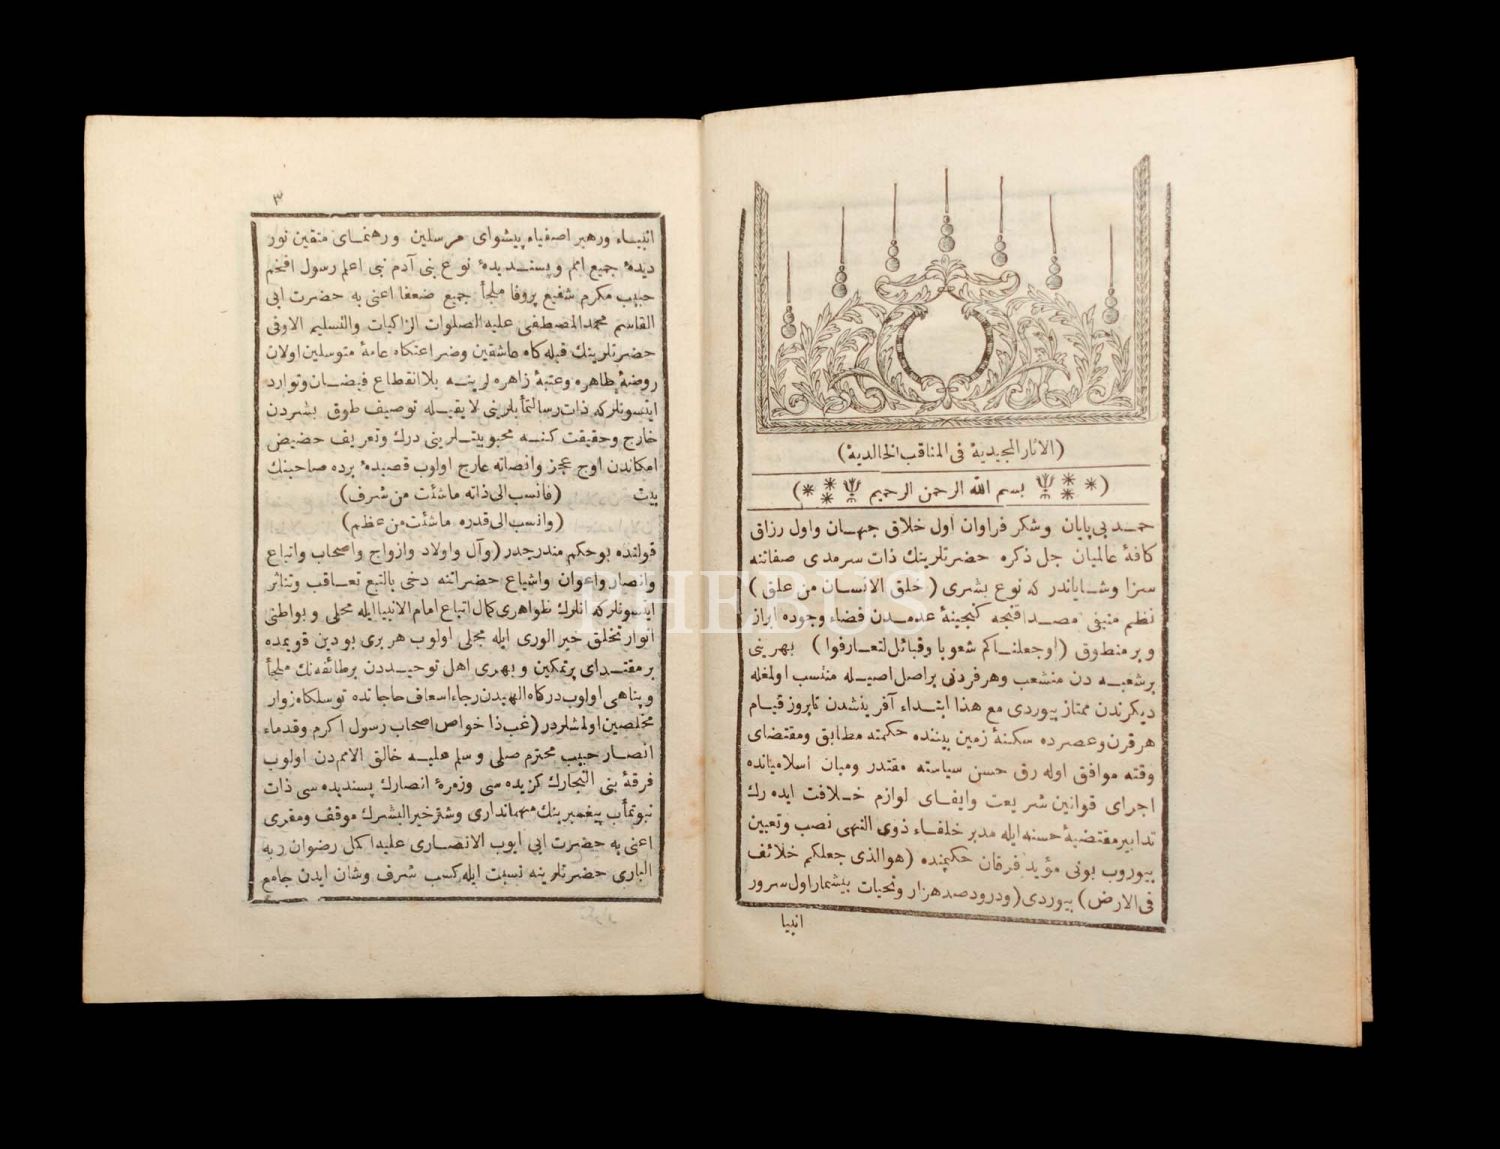 (الاثار المجيدية فى المناقب الخالدية)
(بسم الله الرحمن الرحيم)
حمد بى پايان وشكر فراوان اول خلاق جهان واول رزاق
كافۀ عالميان جل ذكره حضرتلرينك ذات سرمدى صفاتنه
سزا وشاياندر كه نوع بشرى (خلق الانسان من علق)
نظم متبنى مصداقنجه كنجينۀ عدمدن فضاء وجوده ابراز
وبر منطوق (وجعلناكم شعوبا وقبائل لتعارفوا) بهرينى
بر شعبه دن منشعب وهر فردنى بر اصل اصيله منتسب اولمغله
ديكرندن ممتاز بيوردى مع هذا ابتداء آفرينشدن تا بروز قيام
هر قرن وعصرده سكنۀ زمين بيننده حكمته مطابق ومقتضاى
وقته موافق اوله رق حسن سياسته مقتدر وميان اسلاميانده
اجراى قوانين شريعت وايفاى لوازم خلافت ايده رك
تدابير مقتضيۀ حسنه ايله مدبر خلفاء ذوى النهى نصب وتعيين
بيوروب بونى مؤيد فرقان حكيمنده (هو الذى جعلكم خلائف
فى الارض) بيوردى (ودرود صد هزار وتحيات بيشمار اول سرور
انبيا
٣
انبياء ورهبر اصفياء پيشواى مرسلين ورهنماى متقين نور
ديدۀ جميع امم وپسنديدۀ نوع بنى آدم نبى اعلم رسول افخم
حبيب مكرم شفيع پروفا ملجأ جميع ضعفا اعنى به حضرت ابى
القاسم محمد المصطفى عليه الصلوات الزاكيات والتسليم الاوفى
حضرتلرينك قبله كاه عاشقين وضراعتكاه عامۀ متوسلين اولان
روضۀ طاهره وعتبۀ زاهره لرينه بلا انقطاع فيضان وتوارد
ايتسونلر كه ذات رسالتمأبلرينى لا يقيله توصيف طوق بشردن
خارج وحقيقت كنه محبوبيتلرينى درك وتعريف حضيض
امكاندن اوج عجز وانصاته عارج اولوب قصيدۀ برده صاحبنك
بيت (فانسب الى ذاته ماشئت من شرف)
(وانسب الى قدره ماشئت من عظم)
قولنده بو حكم مندرجدر (وآل واولاد وازواج واصحاب واتباع
وانصار واعوان واشياع حضراتنه دخى بالتبع تعاقب وتناثر
ايتسونلر كه انلرك ظواهرى كمال اتباع امام الانبيا ايله محلى وبواطنى
انوار تخلق خير الورى ايله مجلى اولوب هر برى بو دين قويمده
بر مقتداى پر تمكين وبهرى اهل توحيددن بر طائفه نك ملجأ
وپناهى اولوب دركاه الهيدن رجاء اسعاف حاجاتده توسلكاه زوار
مخلصين اولمشلردر (غب ذا خواص اصحاب رسول اكرم وقدماء
انصار حبيب محترم صلى وسلم عليه خالق الامم دن اولوب
فرقۀ بنى النجارك كزيده سى وزمرۀ انصارك پسنديده سى ذات
نبوتمأب پيغمبرينك مهماندارى وشتر خير البشرك موقف ومقرى
اعنى به حضرت ابى ايوب الانصارى عليه اكمل رضوان ربه
البارى حضرتلرينه نسبت ايله كسب شرف وشان ايدن جامع
PHEBUS